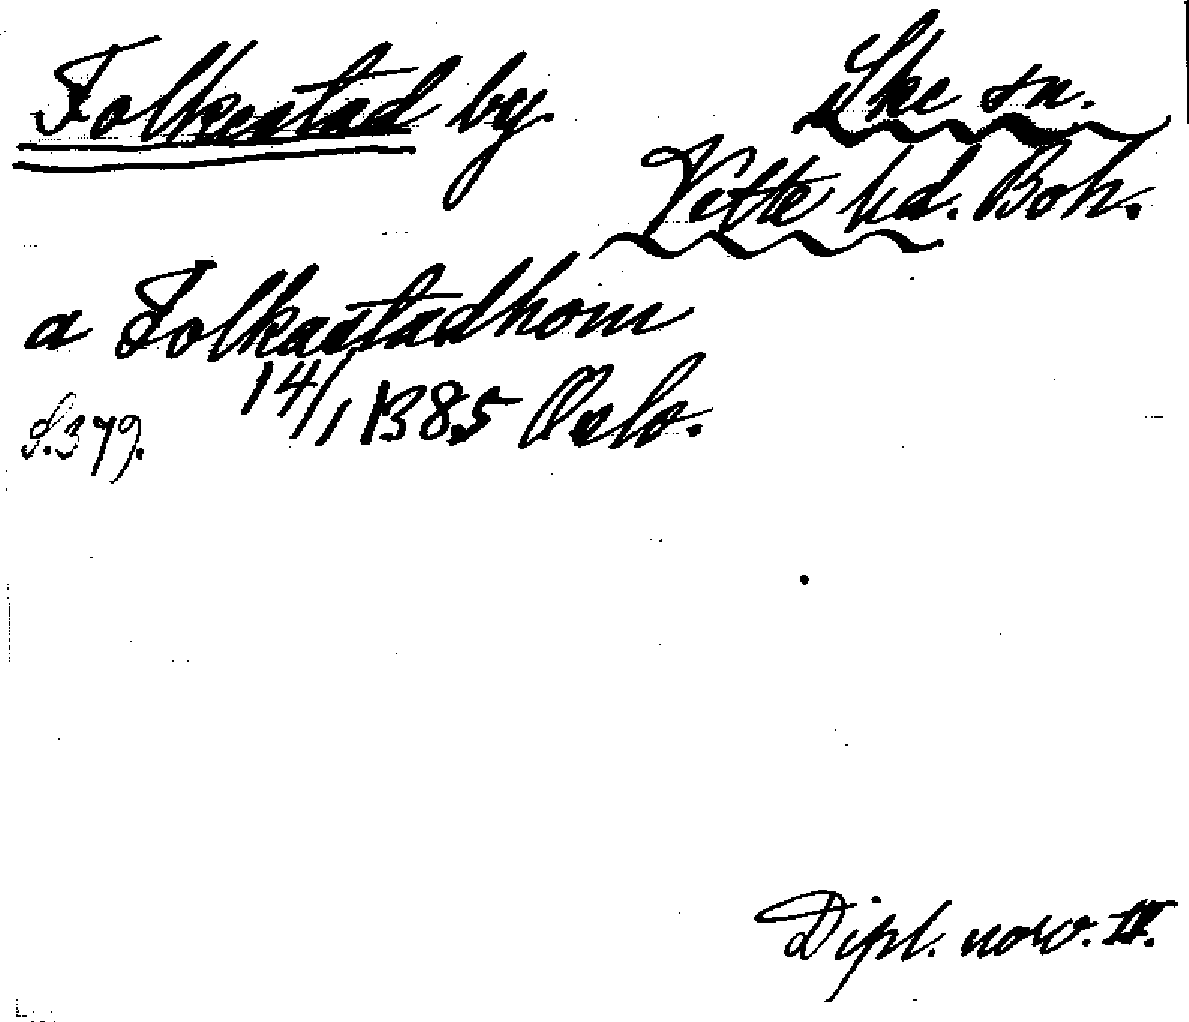 Folkestad by.
Skee sn.
Vette hd. Boh.
a Folkastadhom
14/1 1385 Oslo.
S. 379.
Dipl. norv. II.